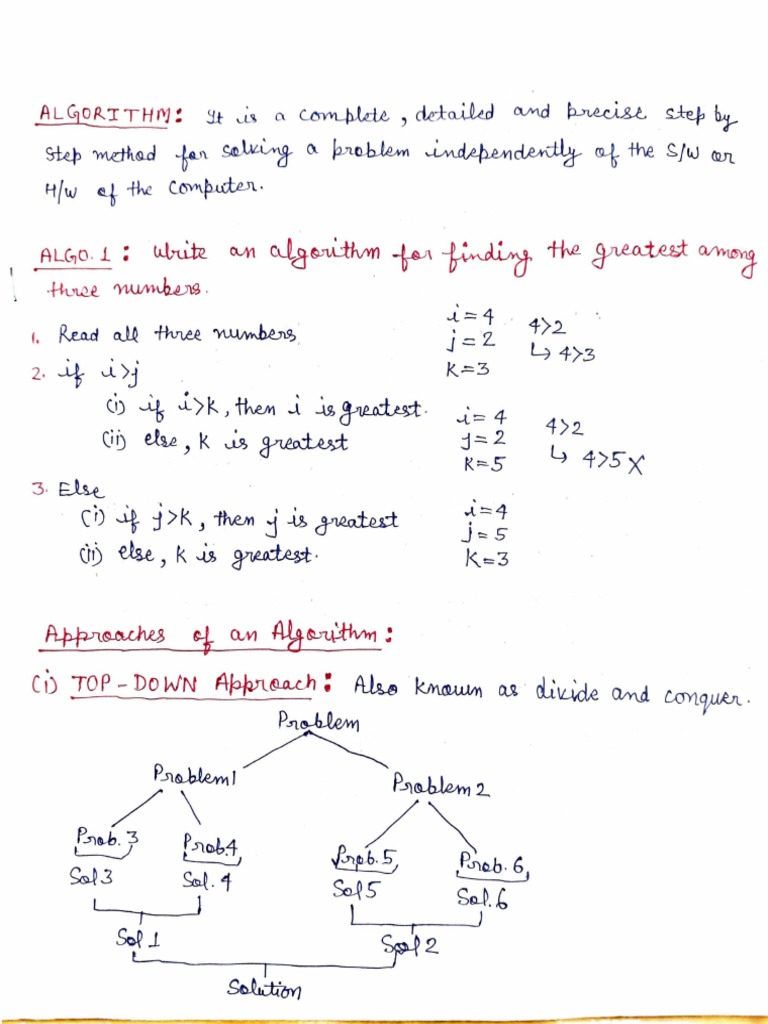 ALGORITHM: It is a complete, detailed and precise step by
step method for solving a problem independently of the S/W or
H/W of the computer.
ALGO.1: Write an algorithm for finding the greatest among
three numbers.
1. Read all three numbers
i=4
j=2
k=3
4>2
↳ 4>3
2. if i>j
(i) if i>k, then i is greatest.
(ii) else, k is greatest
i=4
j=2
k=5
4>2
↳ 4>5 X
3. Else
(i) if j>k, then j is greatest
(ii) else, k is greatest.
i=4
j=5
k=3
Approaches of an Algorithm:
(i) TOP-DOWN Approach: Also known as divide and conquer.
Problem
Problem1 Problem 2
Prob.3 Prob.4 Prob.5 Prob.6
Sol 3 Sol.4 Sol 5 Sol.6
Sol 1 Sol 2
Solution